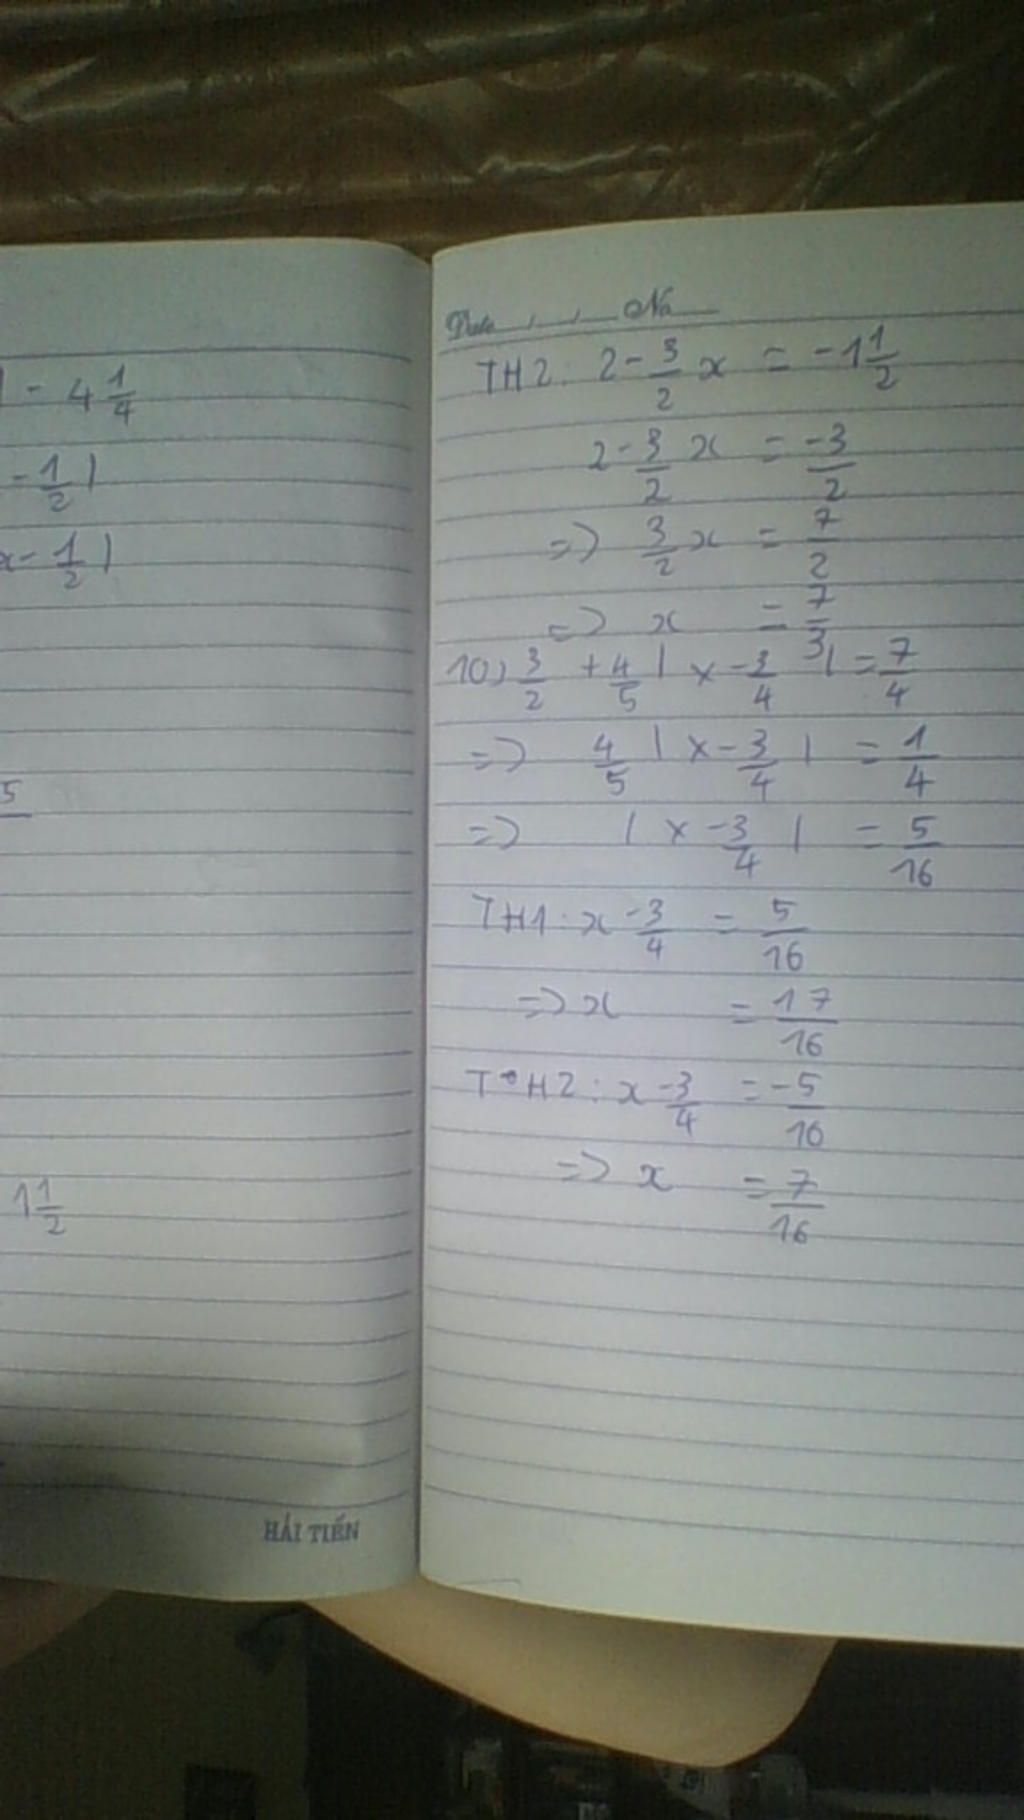 - 4 1/4
- 1/2 |
x - 1/2 |
5
1 1/2
HẢI TIẾN
Date / / No
TH2: 2 - 3/2 x = -1 1/2
2 - 3/2 x = -3/2
=> 3/2 x = 7/2
=> x = 7/3
10) 3/2 + 4/5 | x - 3/4 | = 7/4
=> 4/5 | x - 3/4 | = 1/4
=> | x - 3/4 | = 5/16
TH1: x - 3/4 = 5/16
=> x = 17/16
TH2: x - 3/4 = -5/16
=> x = 7/16